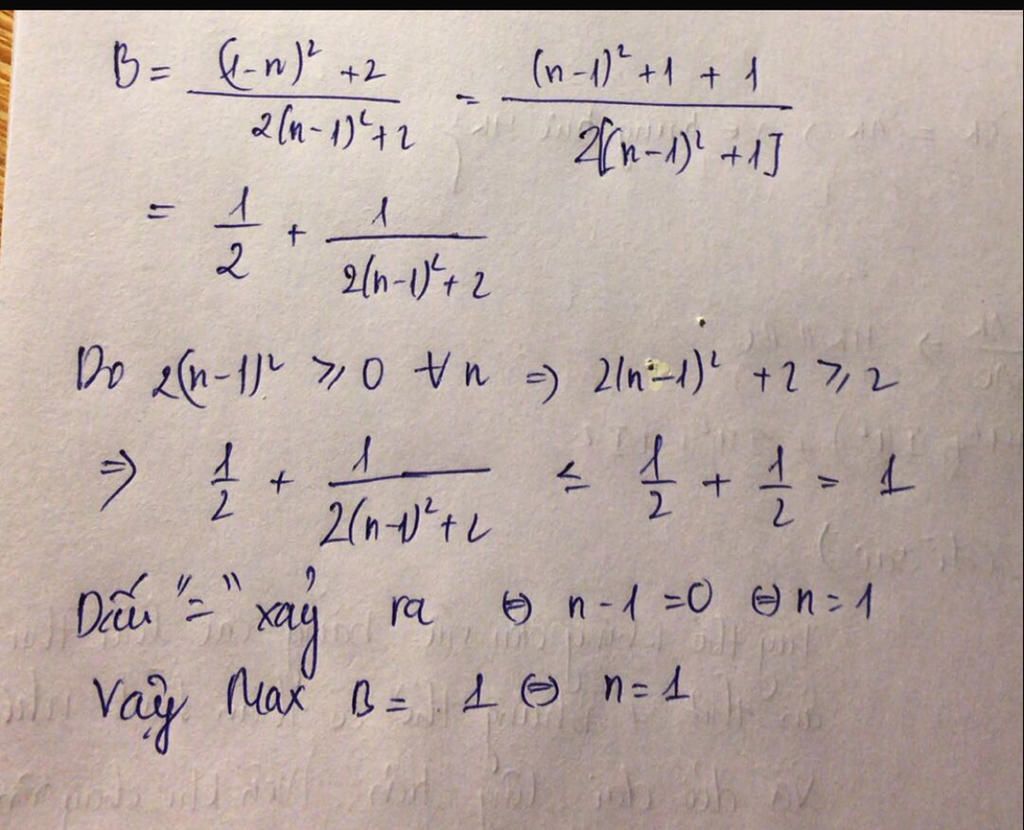 B = \frac{(1-n)^2 + 2}{2(n-1)^2 + 2} = \frac{(n-1)^2 + 1 + 1}{2[(n-1)^2 + 1]}
= \frac{1}{2} + \frac{1}{2(n-1)^2 + 2}
Do 2(n-1)^2 ⩾ 0 ∀n => 2(n-1)^2 + 2 ⩾ 2
=> \frac{1}{2} + \frac{1}{2(n-1)^2 + 2} ≤ \frac{1}{2} + \frac{1}{2} = 1
Dấu "=" xảy ra ⇔ n - 1 = 0 ⇔ n = 1
Vậy Max B = 1 ⇔ n = 1